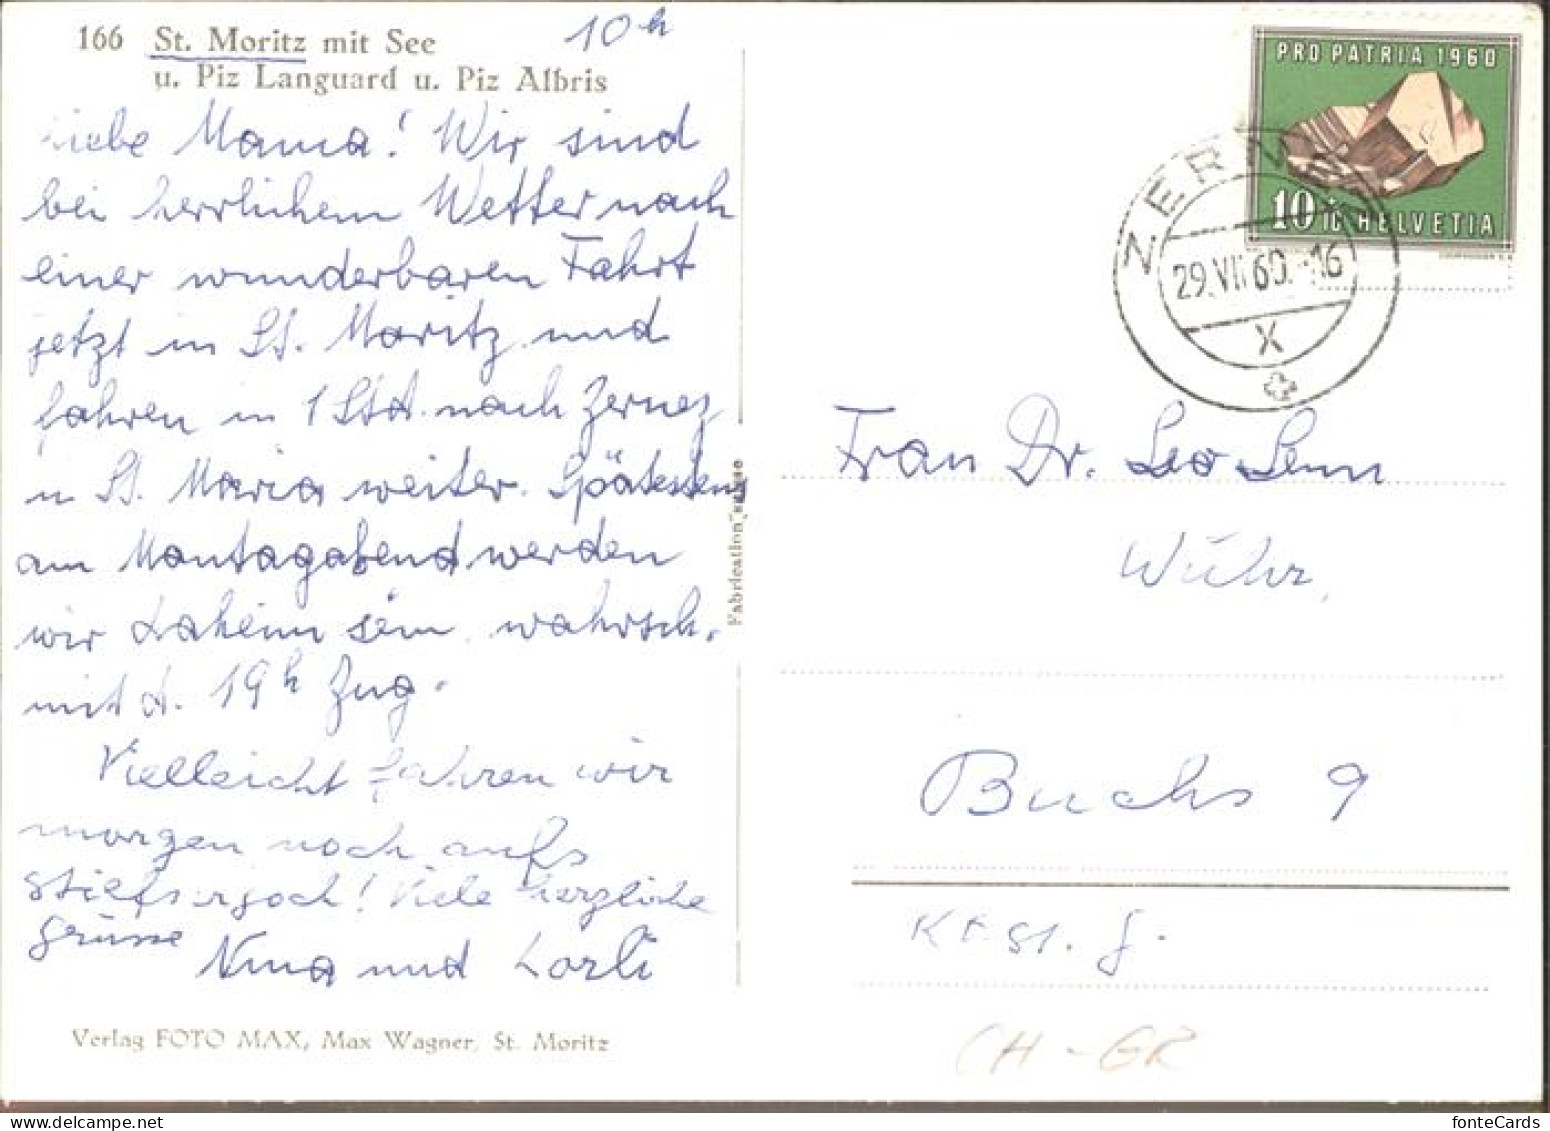 166 St. Moritz mit See
u. Piz Languard u. Piz Albris
10 h
Liebe Mama! Wir sind
bei herrlichem Wetter nach
einer wunderbaren Fahrt
jetzt in St. Moritz und
fahren in 1 Std. nach Zernez
u St. Maria weiter. Spätestens
am Montagabend werden
wir daheim sein, wahrsch.
mit d. 19 h Zug.
Vielleicht fahren wir
morgen noch aufs
Stilfserjoch! Viele herzliche
Grüsse
Nina und Lorli
Verlag FOTO MAX, Max Wagner, St. Moritz
Fabrication suisse
PRO PATRIA 1960
10+10 HELVETIA
ZERNEZ
29.VII.60.-16
X
Frau Dr. Leo Senn
Wühr,
Buchs 9
Kt. St. G.
CH - GR
fonteCards